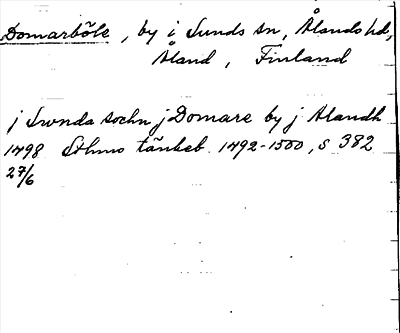 Domarböle, by i Sunds sn, Ålands hd,
Åland, Finland
j Swnda sochn j Domare by j Alandh
1498 Sthmo tänkeb. 1492-1500, s 382
27/6